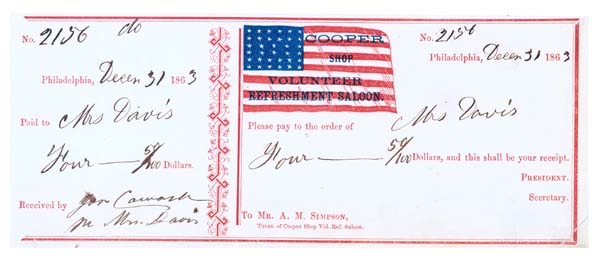 No. 2156 do
Philadelphia, Decem 31 1863
Paid to Mrs Davis
Four — 50/100 Dollars.
Received by
pr Mrs. Davis
COOPER
SHOP
VOLUNTEER
REFRESHMENT SALOON.
No. 2156
Philadelphia, Decem 31 1863
Mrs Davis
Please pay to the order of
Four — 50/100 Dollars, and this shall be your receipt.
PRESIDENT.
Secretary.
To MR. A. M. SIMPSON,
Treas. of Cooper Shop Vol. Ref. Saloon.